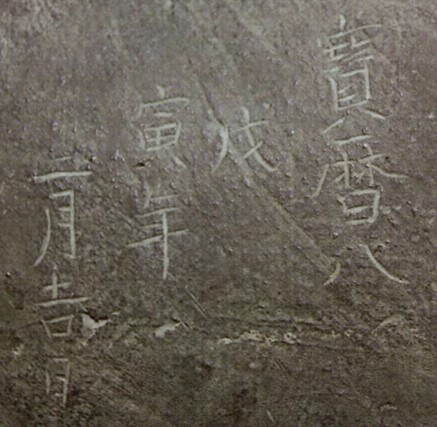 寳暦八
戊
寅年
二月吉日